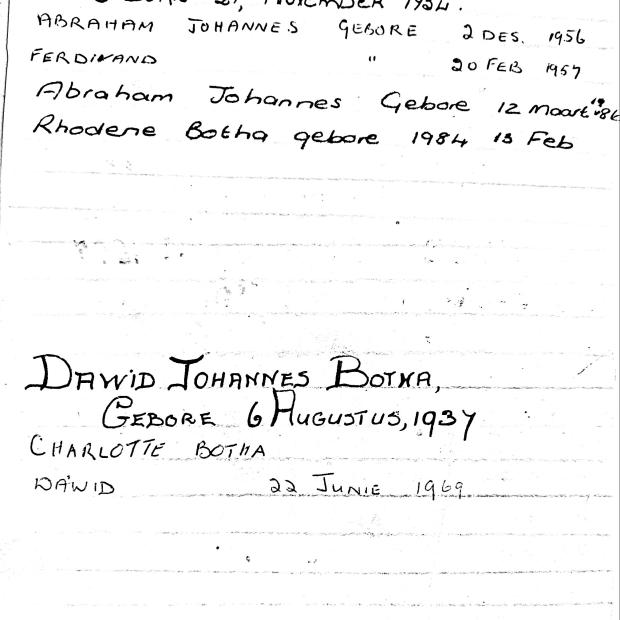 1934.
ABRAHAM JOHANNES GEBORE 2 DES. 1956
FERDINAND " 20 FEB 1957
Abraham Johannes Gebore 12 Maart 1986
Rhodene Botha gebore 1984 13 Feb
DAWID JOHANNES BOTHA,
GEBORE 6 AUGUSTUS, 1937
CHARLOTTE BOTHA
DAWID 22 JUNIE 1969